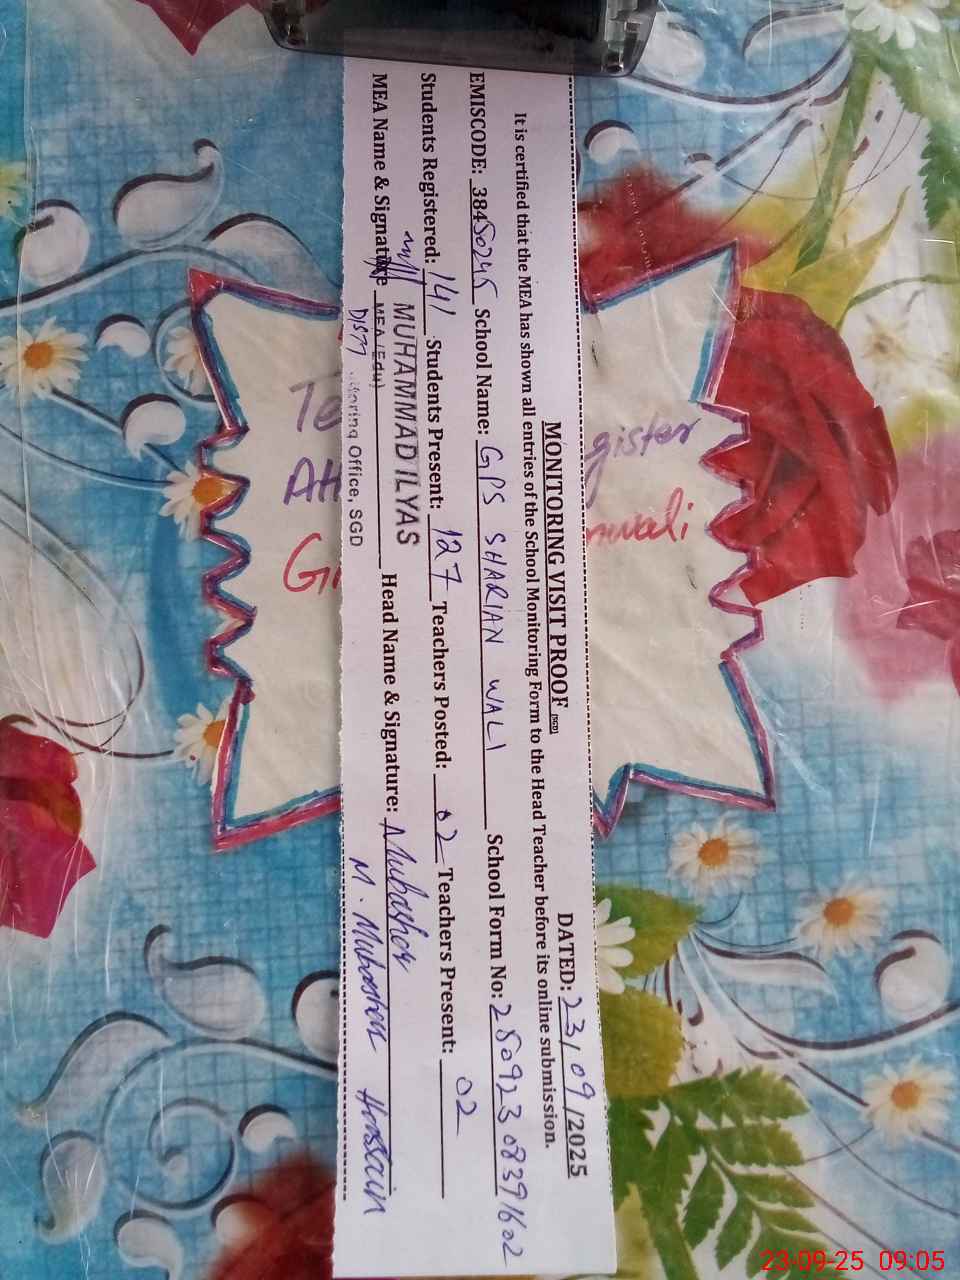 MONITORING VISIT PROOF (SGD)
DATED: 23/09/2025
It is certified that the MEA has shown all entries of the School Monitoring Form to the Head Teacher before its online submission.
EMISCODE: 38450245 School Name: GPS SHARIAN WALI School Form No: 25092308391602
Students Registered: 141 Students Present: 127 Teachers Posted: 02 Teachers Present: 02
MEA Name & Signature MUHAMMAD ILYAS Head Name & Signature: Mubasher
MEA (Edu)
M. Mubasher Hussain
Office, SGD
gister
nwali
23-09-25 09:05